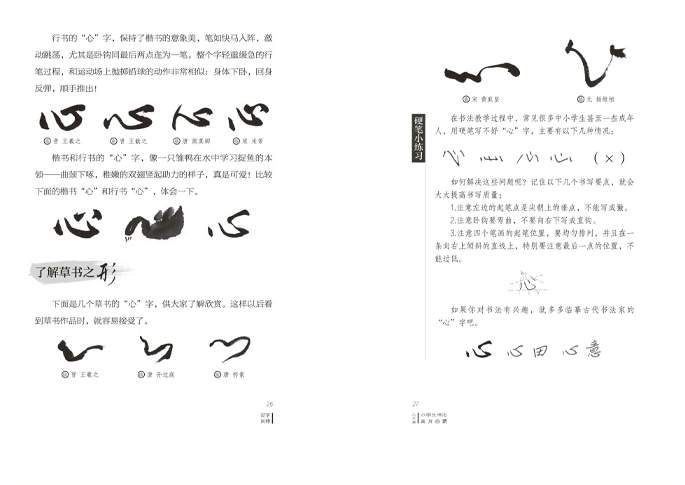 行书的“心”字，保持了楷书的意象美，笔如快马入阵，激
动跳荡，尤其是卧钩同最后两点连为一笔。整个字轻重缓急的行
笔过程，和运动场上抛掷铅球的动作非常相似：身体下卧，回身
反弹，顺手推出！
心 心 心 心
晋 王羲之 晋 王献之 唐 颜真卿 宋 米芾
楷书和行书的“心”字，像一只雏鸭在水中学习捉鱼的本
领——曲颈下啄，稚嫩的双翅竖起助力的样子，真是可爱！比较
下面的楷书“心”和行书“心”，体会一下。
心 心
了解草书之形
下面是几个草书的“心”字，供大家了解欣赏。这样以后看
到草书作品时，就容易接受了。
心 心 心
晋 王羲之 唐 孙过庭 唐 怀素
26
心 心
宋 黄庭坚 元 杨维桢
硬笔小练习
在书法教学过程中，常见很多中小学生甚至一些成年
人，用硬笔写不好“心”字，主要有以下几种情况：
心 心 心 心 （×）
如何解决这些问题呢？记住以下几个书写要点，就会
大大提高书写质量：
1.注意左边的起笔点是尖朝上的垂点，不能写成撇。
2.注意卧钩要弯曲，不要向右下写成直钩。
3.注意四个笔画的起笔位置，要均匀排列，并且在一
条向右上倾斜的直线上，特别要注意最后一点的位置，不
能过低。
心
如果你对书法有兴趣，就多多临摹古代书法家的
“心”字吧。
心 心田 心意
27